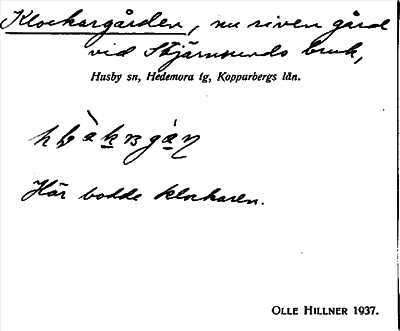 Klockargården, nu riven gård
vid Stjärnsunds bruk,
Husby sn, Hedemora tg, Kopparbergs län.
Här bodde klockaren.
OLLE HILLNER 1937.